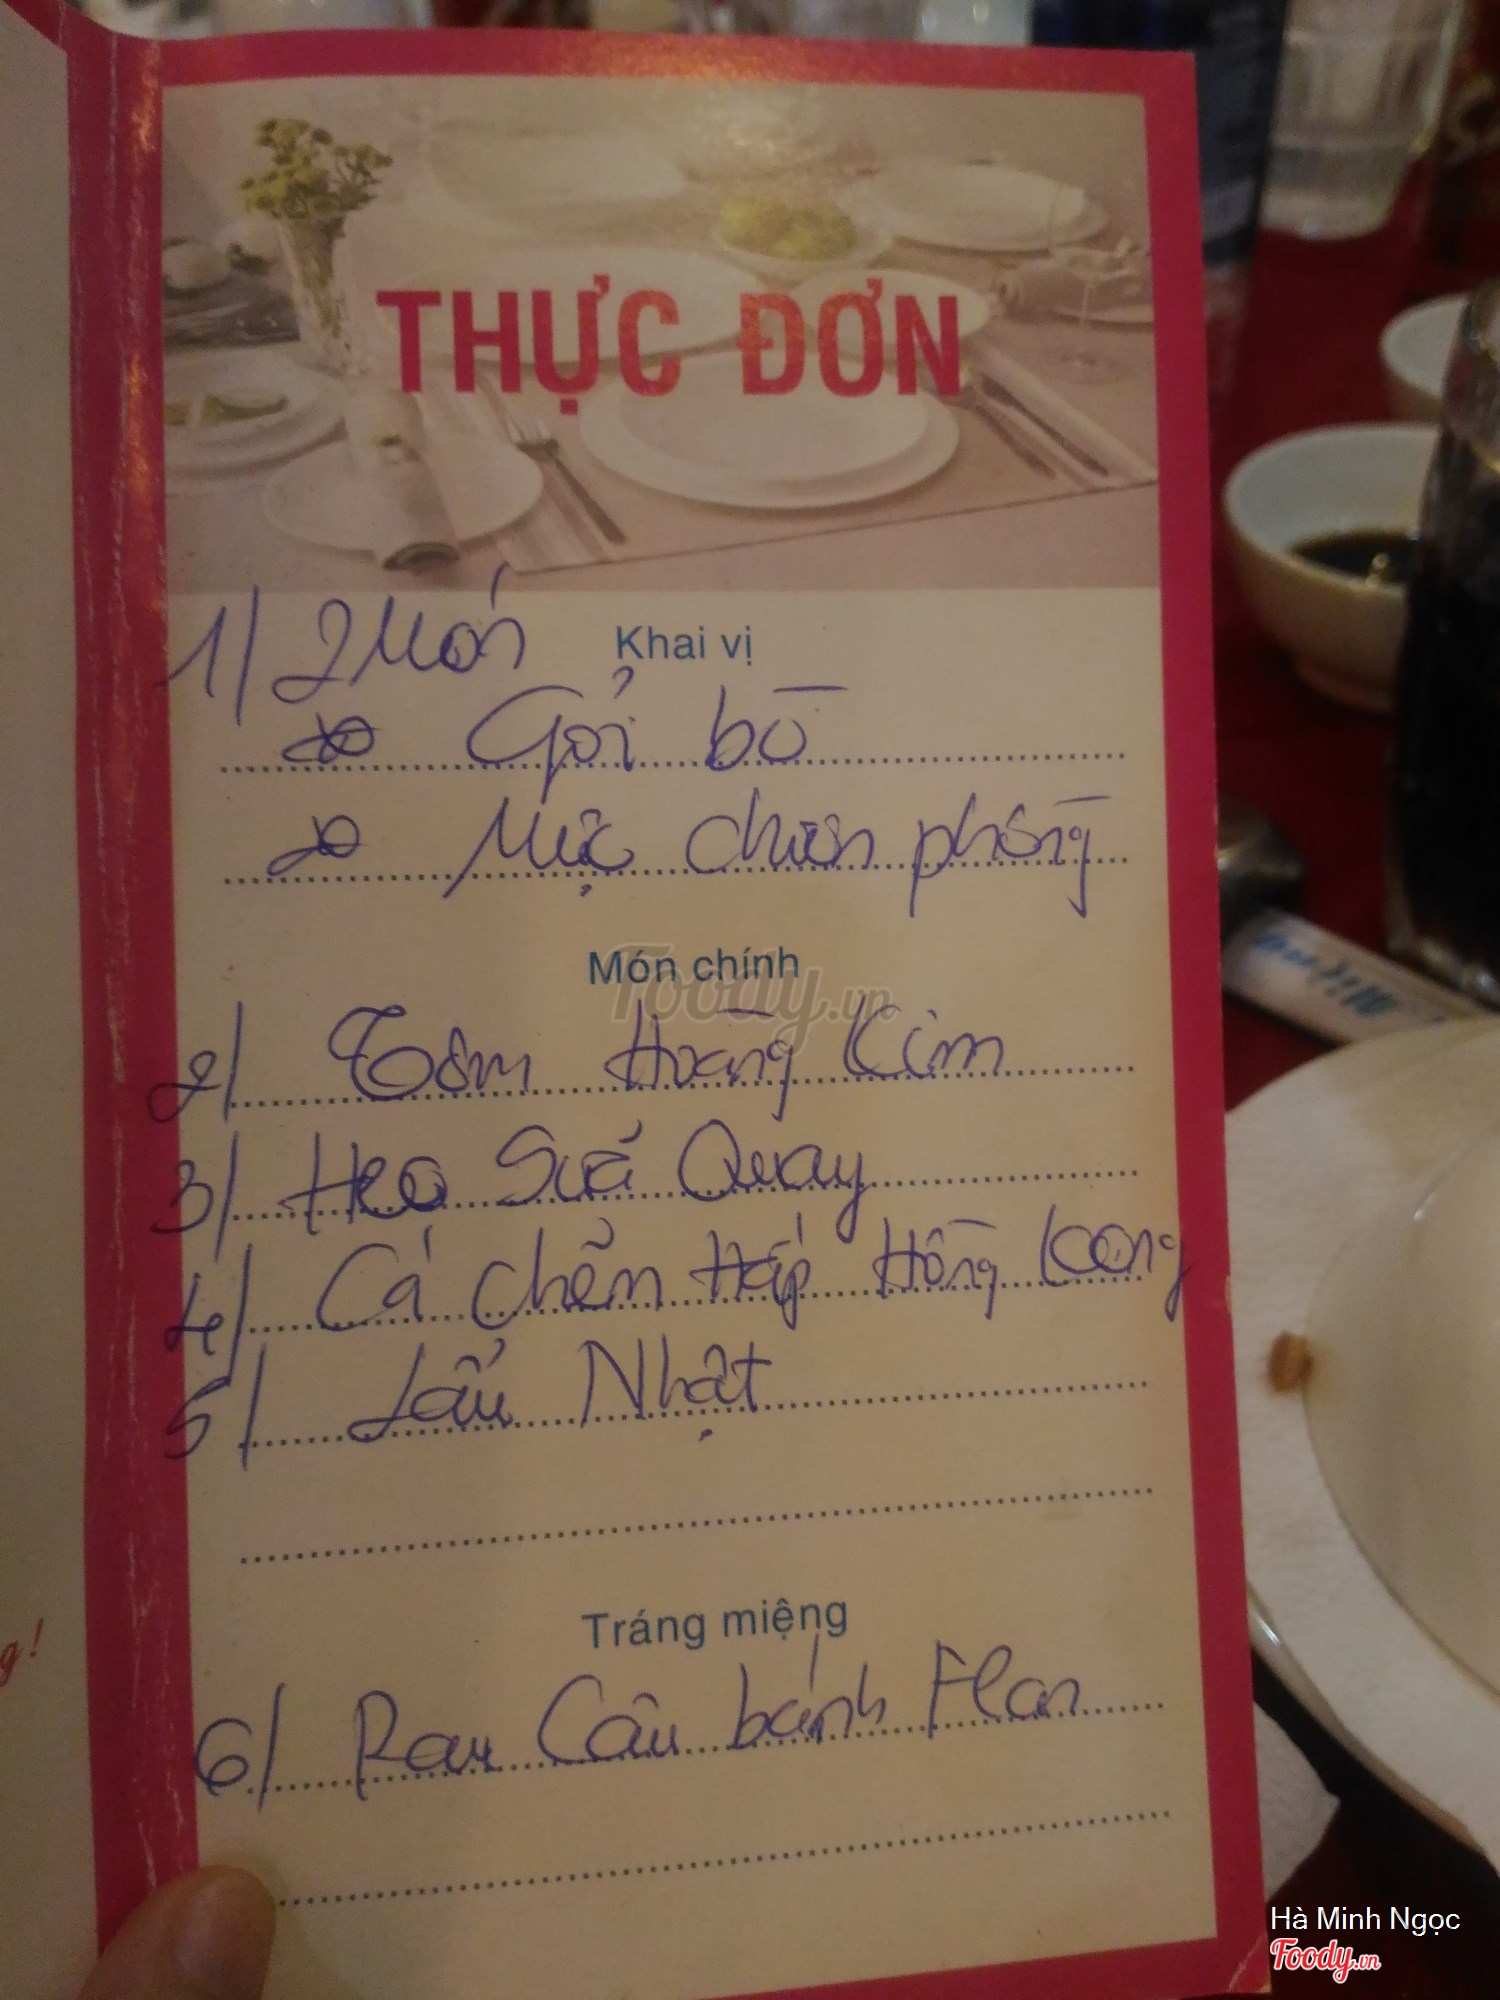 THỰC ĐƠN
1/ 2 Món Khai vị
Gỏi bò
Mực chiên phồng
Món chính
Foody.vn
2/ Tôm Hoàng Kim
3/ Heo Sữa Quay
4/ Cá Chẽm Hấp Hồng Kong
5/ Lẩu Nhật
Tráng miệng
6/ Rau Câu bánh Flan
g!
Hà Minh Ngọc
Foody.vn